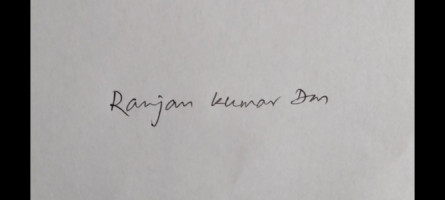 Ranjan Kumar Das